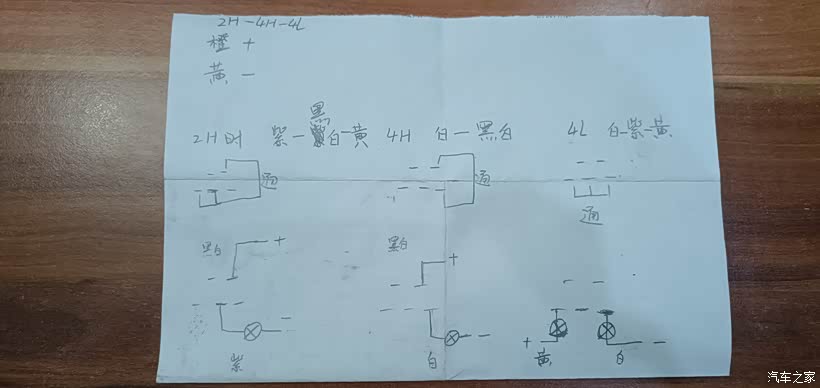 2H-4H-4L
橙 +
黄 -
2H时 紫-黑白-黄 4H 白-黑白 4L 白-紫-黄
通 通
通
黑白 + 黑白 +
- -
紫 白 + 黄 白 -
汽车之家